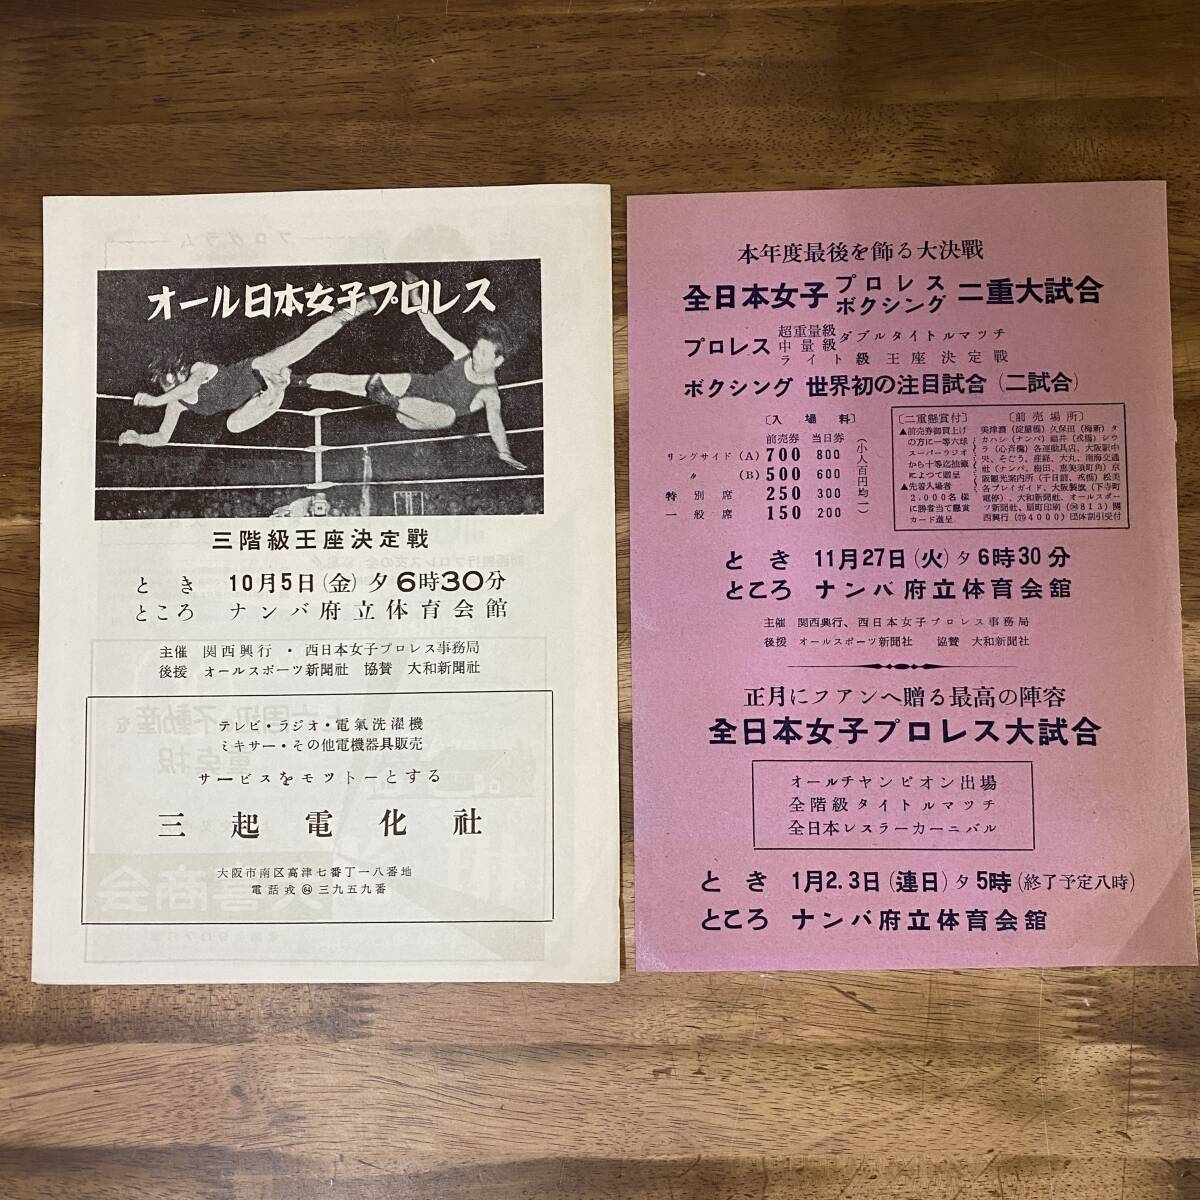 オール日本女子プロレス
三階級王座決定戰
とき 10月5日(金)夕6時30分
ところ ナンバ府立体育会館
主催 関西興行・西日本女子プロレス事務局
後援 オールスポーツ新聞社 協賛 大和新聞社
テレビ・ラジオ・電氣洗濯機
ミキサー・その他電機器具販売
サービスをモツトーとする
三起電化社
大阪市南区高津七番丁一八番地
電話戎(64)三九五九番
本年度最後を飾る大決戰
全日本女子 プロレス ボクシング 二重大試合
プロレス 超重量級 中量級 ダブルタイトルマツチ
ライト級王座決定戰
ボクシング 世界初の注目試合(二試合)
〔入場料〕
前売券 当日券
リングサイド(A) 700 800
〃 (B) 500 600
特別席 250 300
一般席 150 200
(小人百円均一)
〔二重懸賞付〕
▲前売券御買上げ
の方に一等六球
スーパーラジオ
から十等迄抽籤
によつて贈呈
▲先着入場者
2,000名様
に勝者当て懸賞
カード進呈
〔前売場所〕
美津濃(淀屋橋)久保田(梅新)タ
カハシ(ナンバ)福井(戎橋)シウ
ラ(心斉橋)各運動具店、大阪駅中
央、そごう、産経、大丸、南海交通
社(ナンバ、梅田、恵美須町角)京
阪観光案内所(千日前、戎橋)松美
各プレイガイド、大阪製旗(下寺町
電停)、大和新聞社、オールスポー
ツ新聞社、扇町印刷 813)関
西興行 4000)団体割引受付
とき 11月27日(火)夕6時30分
ところ ナンバ府立体育会館
主催 関西興行、西日本女子プロレス事務局
後援 オールスポーツ新聞社 協賛 大和新聞社
正月にフアンへ贈る最高の陣容
全日本女子プロレス大試合
オールチヤンピオン出場
全階級タイトルマツチ
全日本レスラーカーニバル
とき 1月2.3日(連日)夕5時(終了予定八時)
ところ ナンバ府立体育会館